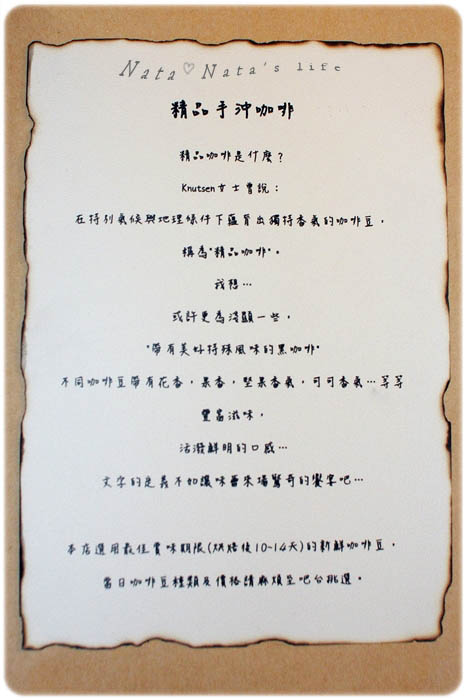 Nata♡Nata's life
精品手沖咖啡
精品咖啡是什麼?
Knutsen女士曾說:
在特別氣候與地理條件下蘊育出獨特香氣的咖啡豆,
稱為"精品咖啡"。
我想…
或許更為淺顯一些,
"帶有美好特殊風味的黑咖啡"
不同咖啡豆帶有花香,果香,堅果香氣,可可香氣…等等
豐富滋味,
活潑鮮明的口感…
文字的定義不如讓味蕾來場驚奇的饗宴吧…
本店選用最佳賞味期限(烘焙後10-14天)的新鮮咖啡豆,
當日咖啡豆種類及價格請麻煩至吧台挑選。